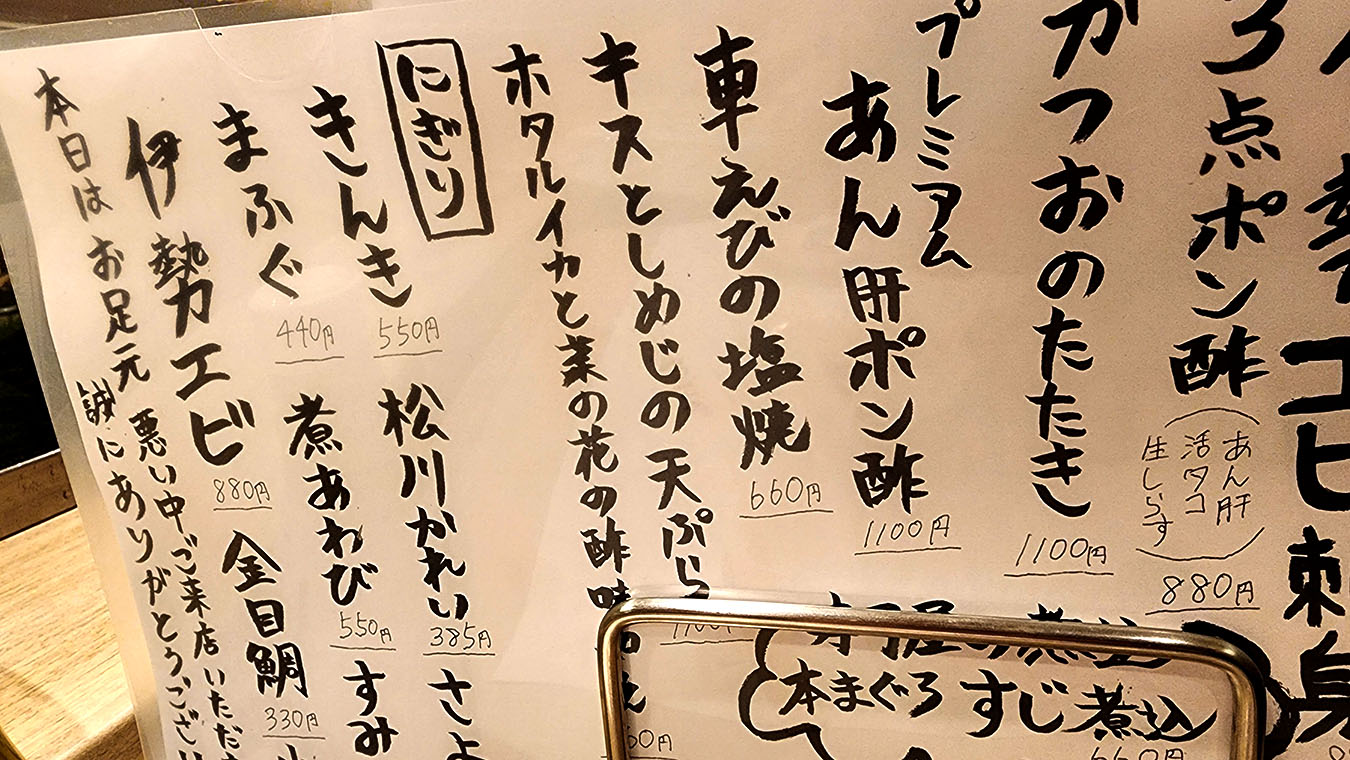 エビ刺身
3点ポン酢
あん肝
活タコ
生しらす
880円
かつおのたたき
1100円
プレミアム
あん肝ポン酢
1100円
車えびの塩焼
660円
キスとしめじの天ぷら
1100円
ホタルイカと菜の花の酢味
本まぐろ
すじ煮込
660円
にぎり
きんき
550円
松川かれい
385円
さよ
まふぐ
440円
煮あわび
550円
すみ
伊勢エビ
880円
金目鯛
330円
本日はお足元
悪い中ご来店いただ
誠にありがとうござい